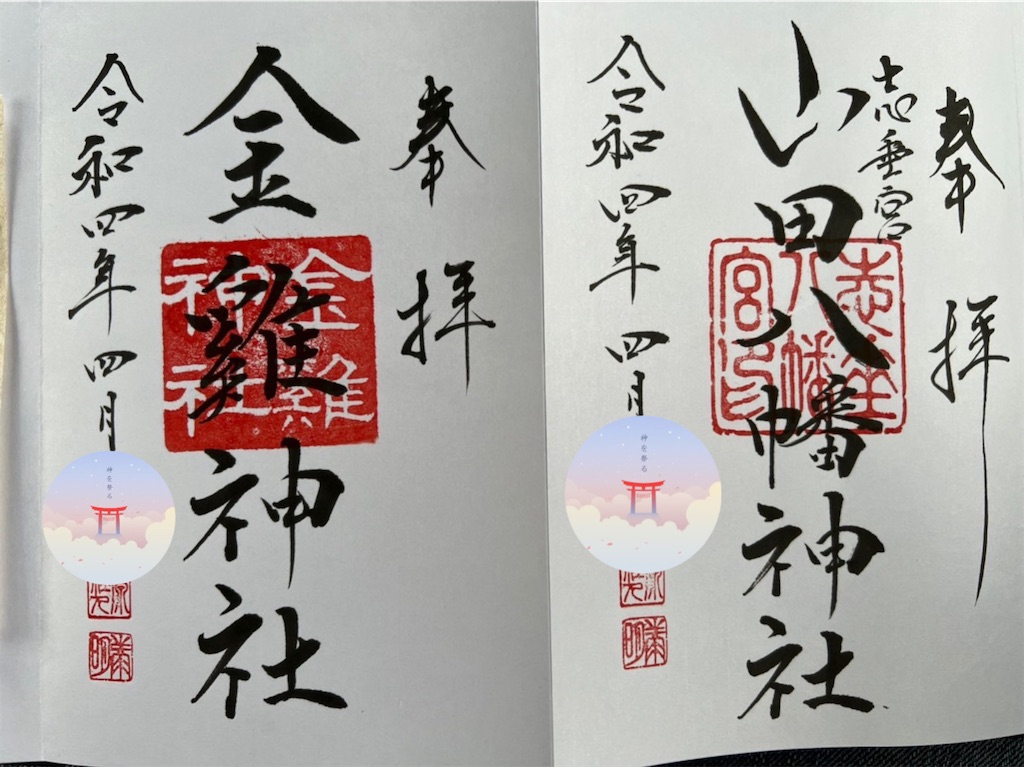 奉拝
志垂宮
山田八幡神社
志垂
八幡
宮印
令和四年四月
奉拝
金雞神社
金雞
神社
令和四年四月